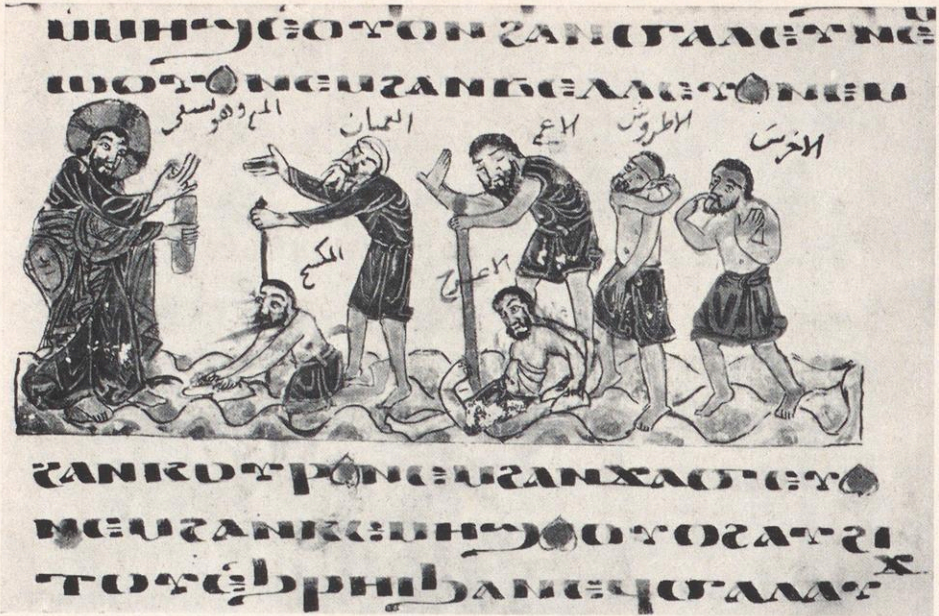 ⲙⲙⲏϣ ⲉⲟⲩⲟⲛ ϩⲁⲛϭⲁⲗⲉⲩ ⲛⲉ
ⲙⲱⲟⲩ ⲛⲉⲙ ϩⲁⲛⲃⲉⲗⲗⲉⲩ ⲛⲉⲙ
وهو يشفى
العميان
الاطروش
الاخرس
المكسح
الاعرج
ϩⲁⲛⲕⲟⲩⲣ ⲛⲉⲙ ϩⲁⲛϫⲁϭⲉⲩ
ⲛⲉⲙ ϩⲁⲛⲕⲉⲙⲏϣ ⲟⲩⲟϩ ⲁⲩϩⲓ
ⲧⲟⲩ ⲉ̀ϧⲣⲏⲓ ϧⲁ ⲛⲉϥϭⲁⲗⲁⲩϫ